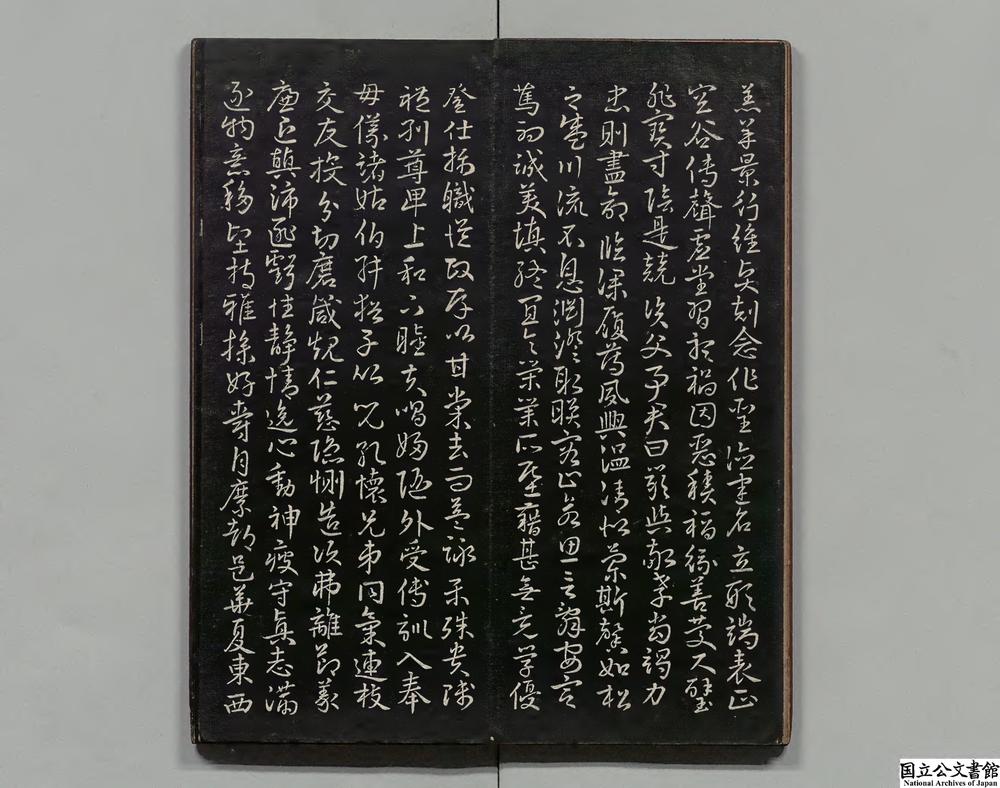 羔羊景行維賢剋念作聖德建名立形端表正
空谷傳聲虛堂習聽禍因惡積福緣善慶尺璧
非寶寸陰是競資父事君曰嚴與敬孝當竭力
忠則盡命臨深履薄夙興溫凊似蘭斯馨如松
之盛川流不息淵澄取映容止若思言辭安定
篤初誠美慎終宜令榮業所基籍甚無竟學優
登仕攝職從政存以甘棠去而益詠樂殊貴賤
禮別尊卑上和下睦夫唱婦隨外受傅訓入奉
母儀諸姑伯叔猶子比兒孔懷兄弟同氣連枝
交友投分切磨箴規仁慈隱惻造次弗離節義
廉退顛沛匪虧性靜情逸心動神疲守真志滿
逐物意移堅持雅操好爵自縻都邑華夏東西
国立公文書館
National Archives of Japan